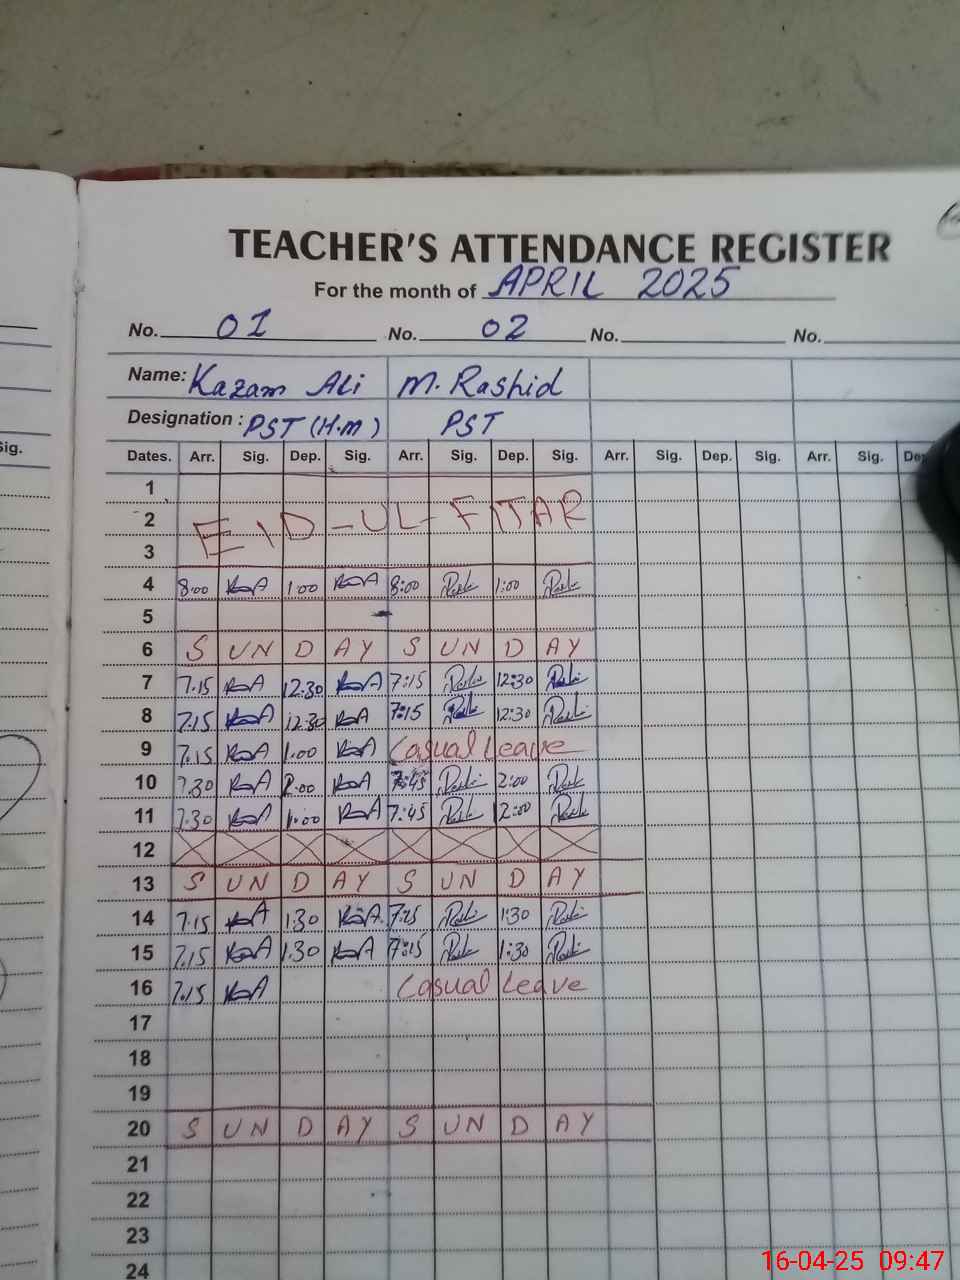 TEACHER'S ATTENDANCE REGISTER
For the month of APRIL 2025
No. 01 No. 02 No. No.
Name: Kazam Ali M. Rashid
Designation : PST (H.m) PST
Sig. Dates. Arr. Sig. Dep. Sig. Arr. Sig. Dep. Sig. Arr. Sig. Dep. Sig. Arr. Sig. Dep
1
2 EID-UL-FITAR
3
4 8.00 KA 1.00 KA 8:00 Rashi 1:00 Rashi
5
6 SUNDAY SUNDAY
7 7.15 KA 12.30 KA 7:15 Rashi 12:30 Rashi
8 7.15 KA 12.30 KA 7:15 Rashi 12:30 Rashi
9 7.15 KA 1.00 KA Casual Leave
10 7.30 KA 2.00 KA 7:45 Rashi 2:00 Rashi
11 7.30 KA 1.00 KA 7:45 Rashi 12:00 Rashi
12
13 SUNDAY SUNDAY
14 7.15 KA 1.30 KA 7:15 Rashi 1:30 Rashi
15 7.15 KA 1.30 KA 7:15 Rashi 1:30 Rashi
16 7.15 KA Casual Leave
17
18
19
20 SUNDAY SUNDAY
21
22
23
24
16-04-25 09:47